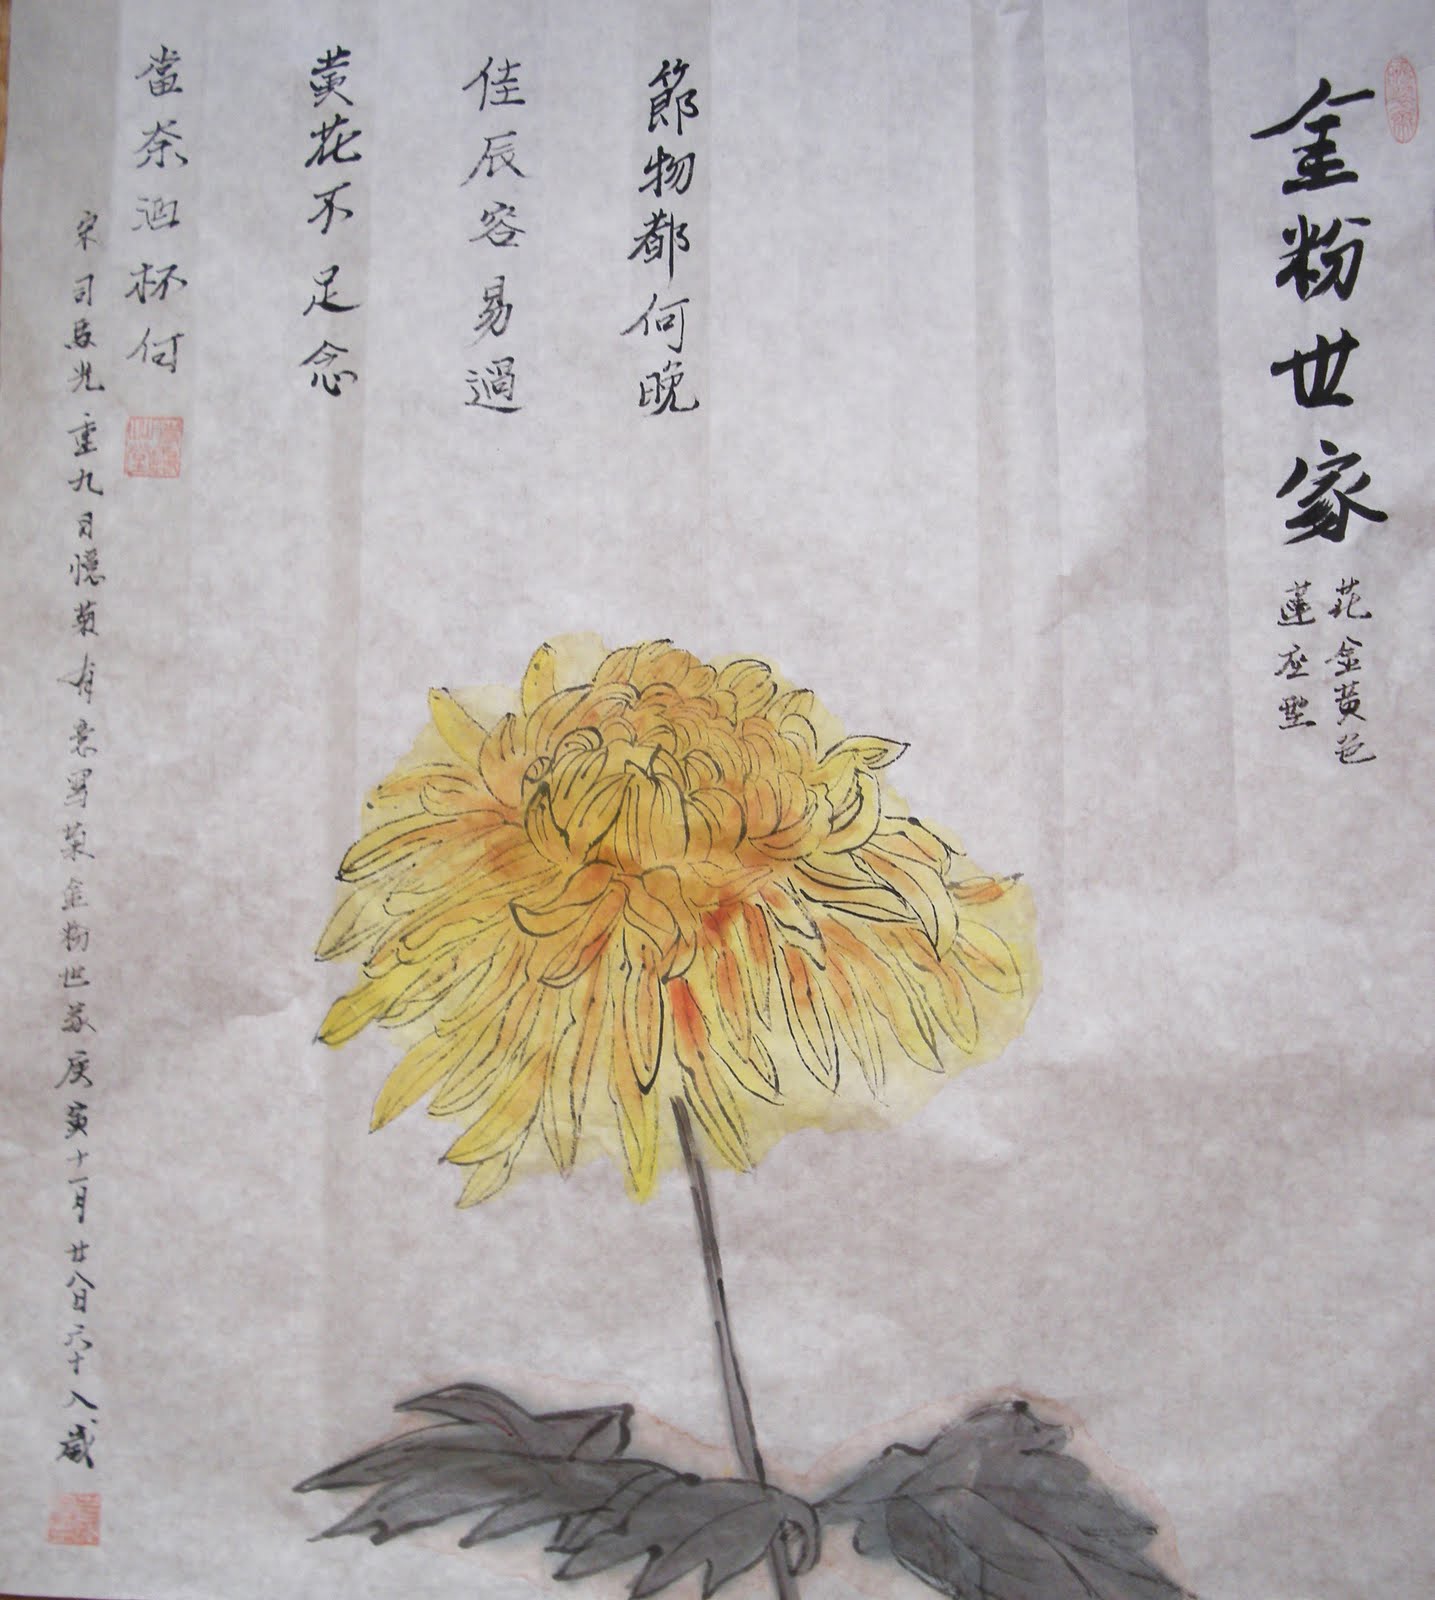 金粉世家
花金黃色
蓮座型
節物都何晚
佳辰容易過
黃花不足念
當奈酒杯何
宋司馬光重九日憶菊有意寫菊金粉世家庚寅十一月廿八日六十八歲